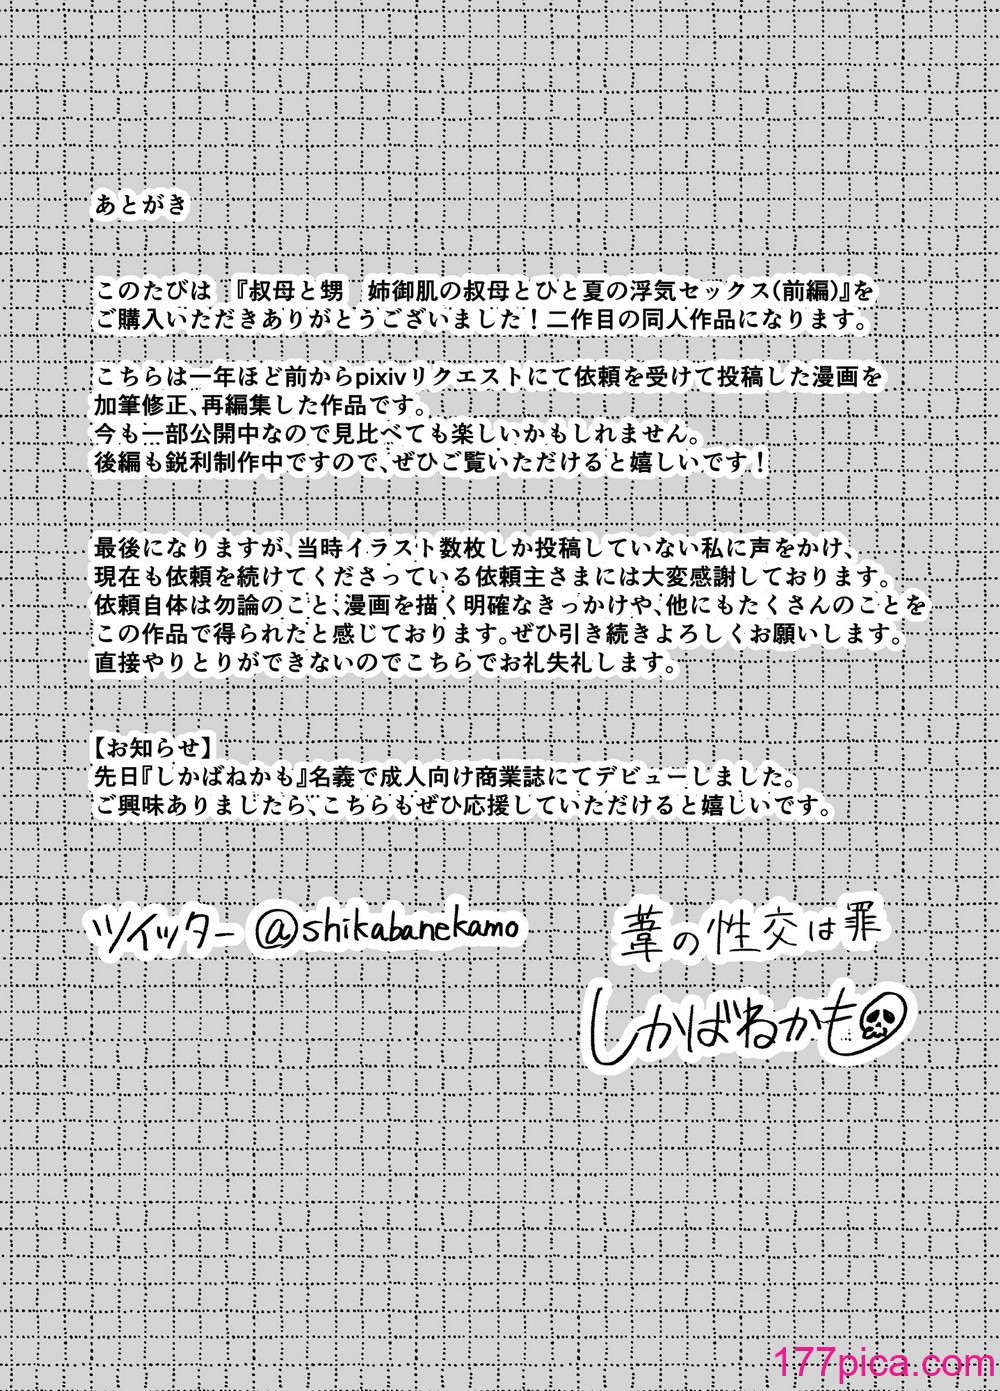 あとがき
このたびは 『叔母と甥 姉御肌の叔母とひと夏の浮気セックス(前編)』を
ご購入いただきありがとうございました！二作目の同人作品になります。
こちらは一年ほど前からpixivリクエストにて依頼を受けて投稿した漫画を
加筆修正、再編集した作品です。
今も一部公開中なので見比べても楽しいかもしれません。
後編も鋭利制作中ですので、ぜひご覧いただけると嬉しいです！
最後になりますが、当時イラスト数枚しか投稿していない私に声をかけ、
現在も依頼を続けてくださっている依頼主さまには大変感謝しております。
依頼自体は勿論のこと、漫画を描く明確なきっかけや、他にもたくさんのことを
この作品で得られたと感じております。ぜひ引き続きよろしくお願いします。
直接やりとりができないのでこちらでお礼失礼します。
【お知らせ】
先日『しかばねかも』名義で成人向け商業誌にてデビューしました。
ご興味ありましたら、こちらもぜひ応援していただけると嬉しいです。
ツイッター @shikabanekamo
葦の性交は罪
しかばねかも
177pica.com